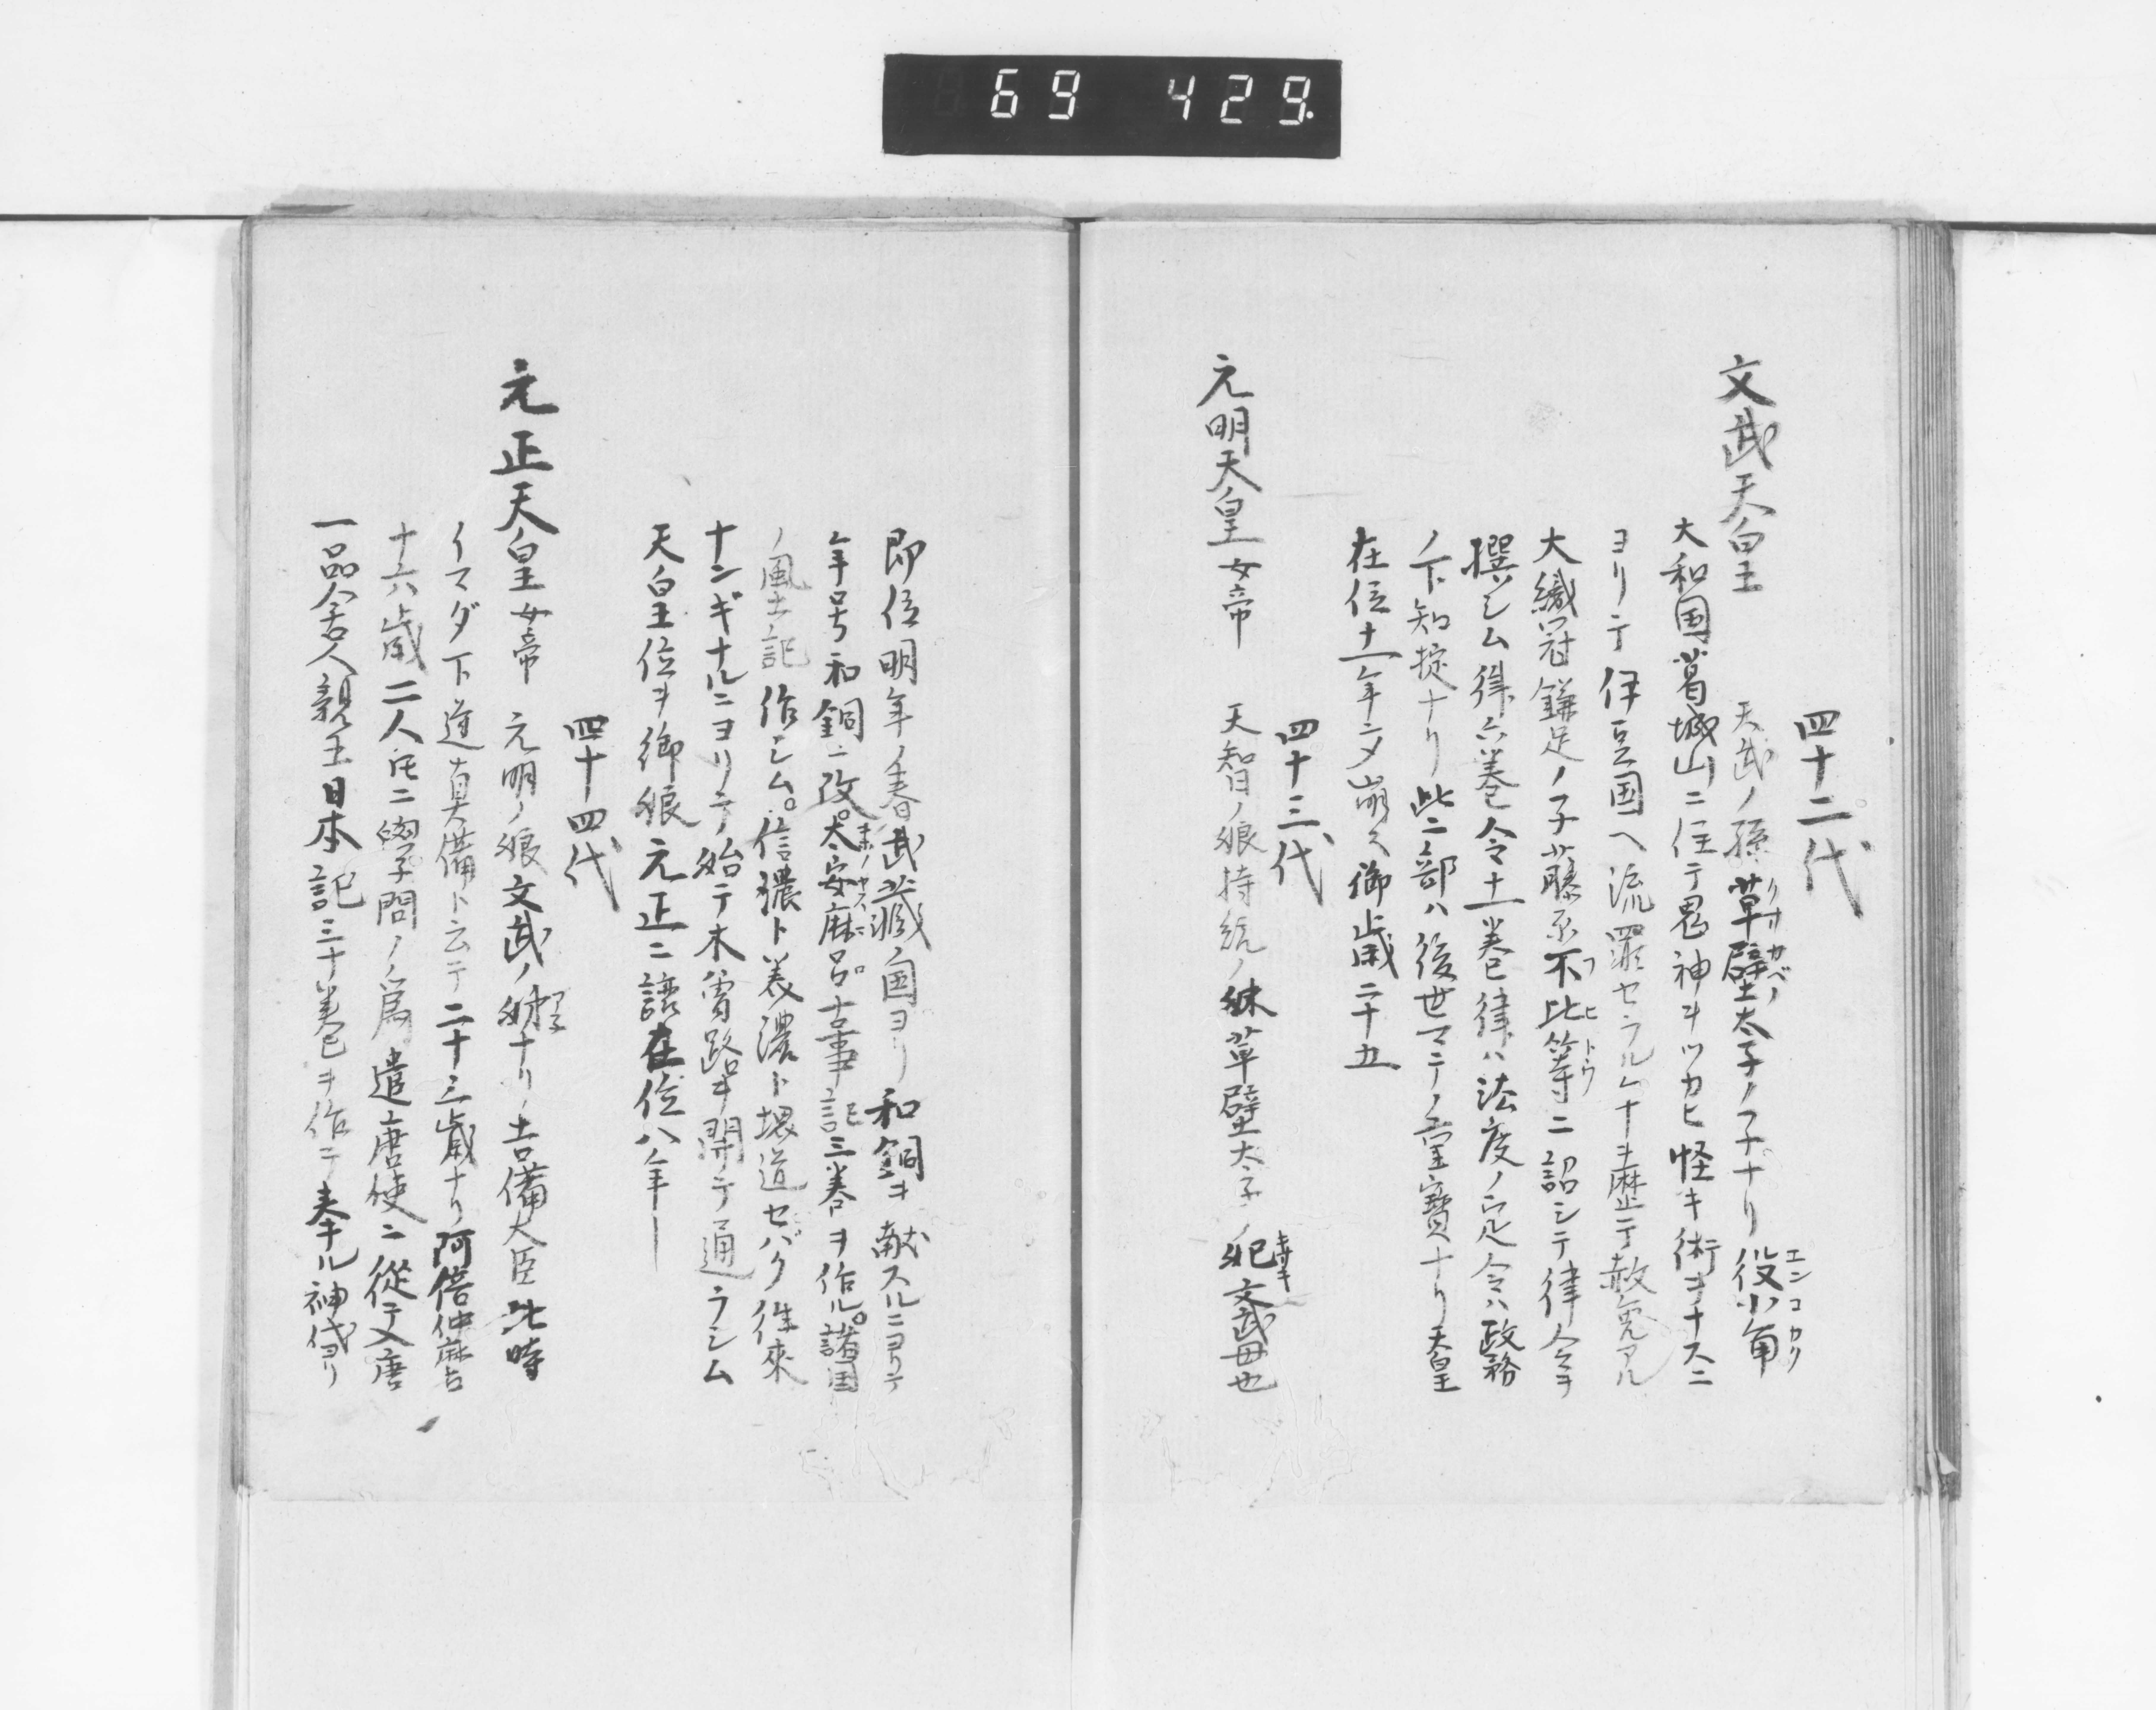 69 429.
四十二代
文武天皇 天武ノ孫草壁太子ノ子ナリ役小角
クサカベノ
エンコカク
大和国葛城山ニ住テ鬼神ヲツカヒ怪キ術ヲナスニ
ヨリテ伊豆国ヘ流罪セラルヿ十ヲ歴テ赦免アル
大織冠鎌足ノ子藤原不比等ニ詔シテ律令ヲ
フヒトウ
撰シム律六巻令十一巻律ハ法度ノ定令ハ政務
ノ下知掟ナリ此二部ハ後世マテノ重宝ナリ天皇
在位十一年ニメ崩ス御歳二十五
四十三代
元明天皇女帝 天智ノ娘持統ノ妹草壁太子ノ妃文武母也
キサキ
即位明年ノ春武蔵ノ国ヨリ和銅ヲ献スルニヨリテ
年号和銅ニ改。太安麻呂古事記三巻ヲ作ル。諸国
ノ風土記作シム。信濃ト美濃ト堺道セバク往來
ナンギナルニヨリテ始テ木曽路ヲ開テ通ラシム
天皇位ヲ御娘元正ニ譲在位八年
四十四代
元正天皇女帝 元明ノ娘文武ノ姉ナリ吉備大臣此時
アネ
イマダ下道真備ト云テ二十三歳ナリ阿倍仲麻呂
十六歳二人トモニ学問ノ為遣唐使ニ從テ入唐
一品舎人親王日本記三十巻ヲ作テ奉ル神代ヨリ